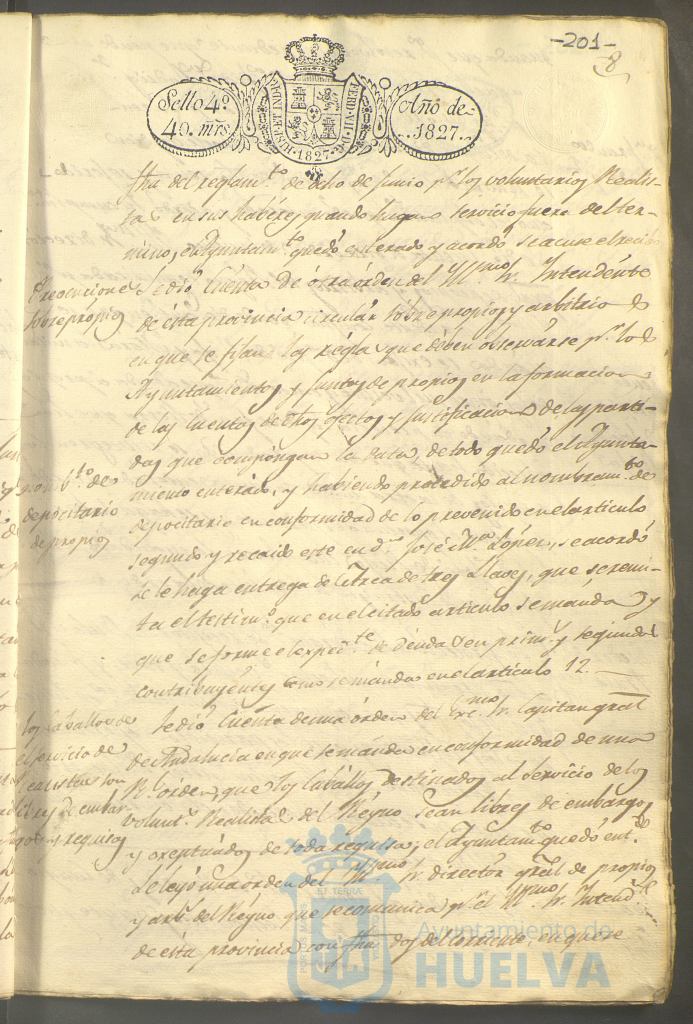 -201-
8
Sello 4º
40. mrs
HISP. ET IND. R.
FERD. VII. D. G.
1827
Año de
1827.
fha del reglam.to de ocho de Junio p.a los voluntarios Realis-
tas en sus haberes quando hagan servicio fuera del ter-
mino, el Ayuntam.to quedó enterado y acordó se acuse el recibo
Prevenciones
sobre propios
Se dió Cuenta de ótra órden del Yll.mo Sr. Intendénte
de ésta provincia circulár sóbre propios y arbitrios
en que se fijan las réglas que débén observárse p.r los
Ayuntamientos y Juntas de propios en la formacion
de las Cuentas de dhos efectos y justificacion de las parti-
das que compongan la data, de todo quedó el Ayunta-
miento enterado, y habiendo procedido al nombram.to de
nomb.to de
depocitario
de propios
depocitario en conformidad de lo prevenido en el articulo
segundo y recaido este en d.n José M.a López, se acordó
se le haga entrega de la Arca de tres Llaves, que se remi-
ta el testim.o que en el citado articulo se mánda y
que se forme el exped.te de déudas en prim.s y segundos
contribuyentes como se mánda en el articulo 12.
los caballos de
el servicio de
realistas son
libres de embar-
gos y requisas
Se dió Cuenta de una órden del Exc.mo Sr. Capitan gral
de Andalucia en que se mánda en conformidad de una
R.l orden que los Caballos destinados al servicio de los
volunt.s Realistas del Reyno sean libres de embargos
y exeptuados de toda requisa, el Ayuntam.to quedó ent.do
Se leyó una orden del Yll.mo Sr. diréctor gral de propios
y arb.s del Reyno que se comunica p.r el Yll.mo Sr. Intend.te
de ésta provincia con fha dos del corriente, en que se
Ayuntamiento de
HUELVA